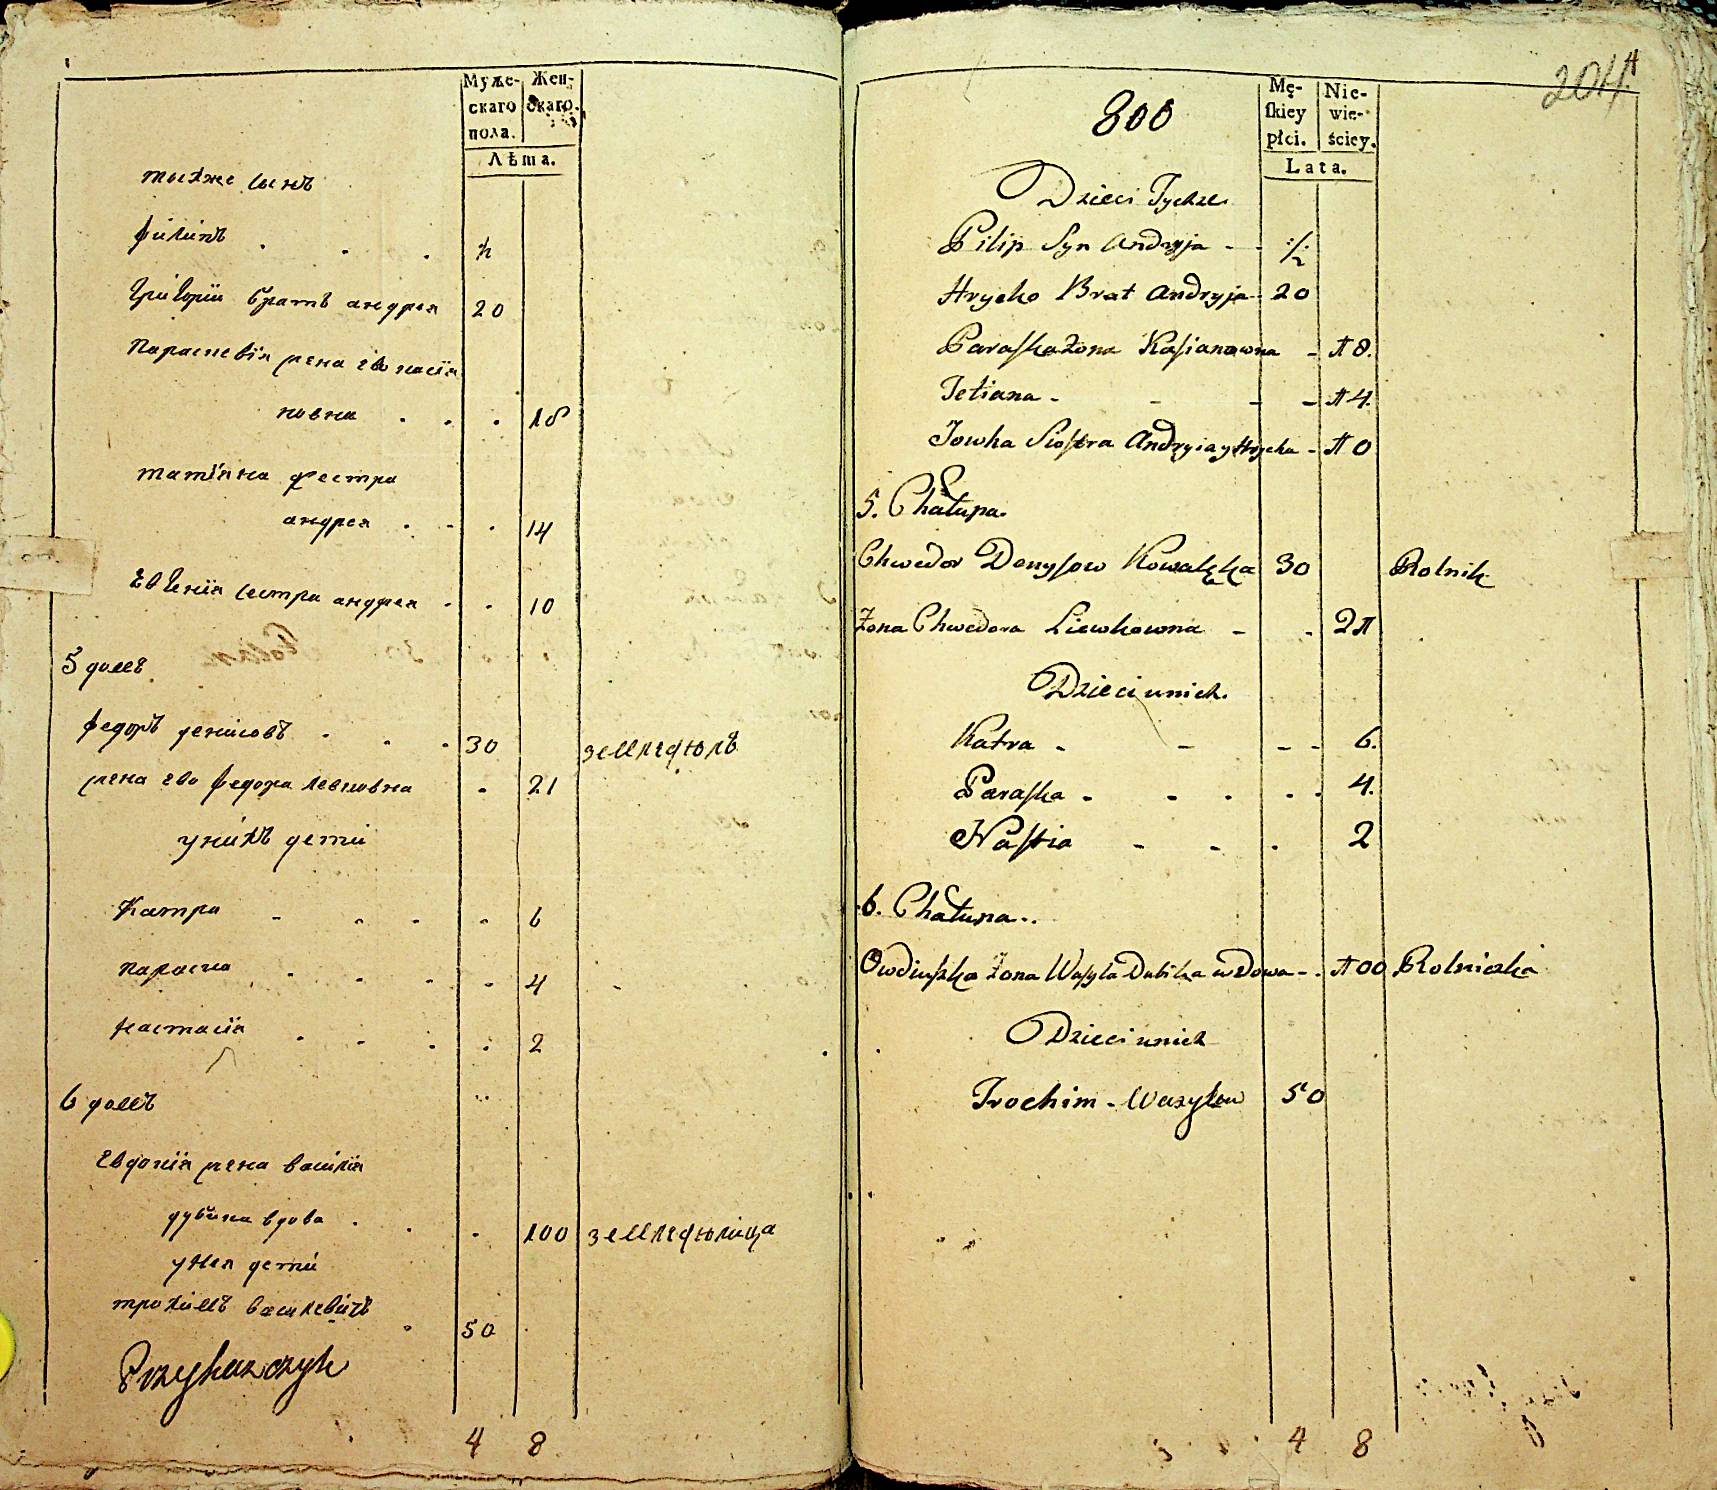 Муже-
скаго
пола.
Жен-
скаго.
Лѣта.
тыхже сынъ
филипъ . . . ½
григорий братъ андрея 20
параскевия жена ево касия
новна . . . 18
татияна сестра
андрея . . . 14
Евгения сестра андрея . . 10
5 домъ
федоръ денисовъ . . . 30 земледюлъ
жена ево федора левковна . 21
унихъ дети
Катра - . . . 6
параска . . . . 4
настасия . . . . 2
6 домъ
Евдокия жена василия
дубика вдова . . . 100 земледюлица
унея дети
трохимъ василевичъ . 50
Przykazczyk
4 8
204
800
Mę-
skiey
płci.
Nie-
wie-
ściey.
Lata.
Dzieci Tychże
Pilip Syn Andryja - - ½
Hrycko Brat Andryja 20
Paraska Żona Kasianowna - 18.
Tetiana - - - - 14.
Jowka Siostra Andryia y Hrycka - 10
5. Chałupa.
Chwedor Denysow Kowalęka 30 Rolnik
Żona Chwedora Liewkowna - - 21
Dzieci unich.
Katra - - - - 6.
Paraska - - - - - 4.
Nastia - - - 2
6. Chałupa..
Owdiuszka żona Wasyla Dubika wdowa - . 100 Rolniczka
Dzieci unich
Trochim - Wasylow 50
4 8